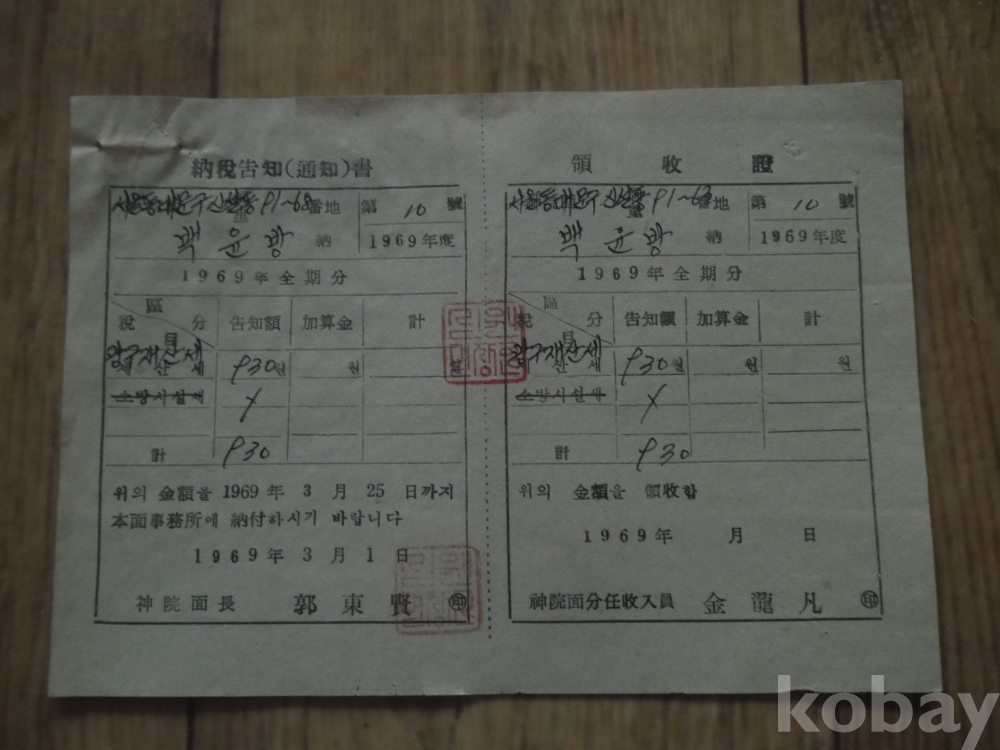 納稅告知(通知)書
서울동대문구 신설동 91~68 番地 第 10 號
백윤방 納 1969年度
1969年全期分
區分 稅目 告知額 加算金 計
임구재산세
산세 930원 원
소방시설세 X
計 930
위의 金額을 1969年 3月 25日까지
本面事務所에 納付하시기 바랍니다
1969年 3月 1日
神院面長 郭東賢 ㊞
領收證
서울동대문구 신설동 91~68 番地 第 10 號
백윤방 納 1969年度
1969年全期分
區分 稅目 告知額 加算金 計
임구재산세
산세 930원 원 원
소방시설세 X
計 930
위의 金額을 領收함
1969年 月 日
神院面分任收入員 金龍凡 ㊞
kobay